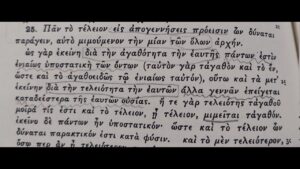 25. Πᾶν τὸ τέλειον εἰς ἀπογεννήσεις πρόεισιν ὧν δύναται
παράγειν, αὐτὸ μιμούμενον τὴν μίαν τῶν ὅλων ἀρχήν.
ὡς γὰρ ἐκείνη διὰ τὴν ἀγαθότητα τὴν ἑαυτῆς πάντων ἐστὶν
ἑνιαίως ὑποστατικὴ τῶν ὄντων (ταὐτὸν γὰρ τἀγαθὸν καὶ τὸ ἕν,
ὥστε καὶ τὸ ἀγαθοειδῶς τῷ ἑνιαίως ταὐτόν), οὕτω καὶ τὰ μετ'
ἐκείνην διὰ τὴν τελειότητα τὴν ἑαυτῶν ἄλλα γεννᾶν ἐπείγεται
καταδεέστερα τῆς ἑαυτῶν οὐσίας. ἥ τε γὰρ τελειότης τἀγαθοῦ
μοῖρά τίς ἐστι καὶ τὸ τέλειον, ᾗ τέλειον, μιμεῖται τἀγαθόν.
ἐκεῖνο δὲ πάντων ἦν ὑποστατικόν· ὥστε καὶ τὸ τέλειον ὧν
δύναται παρακτικόν ἐστι κατὰ φύσιν. καὶ τὸ μὲν τελειότερον,